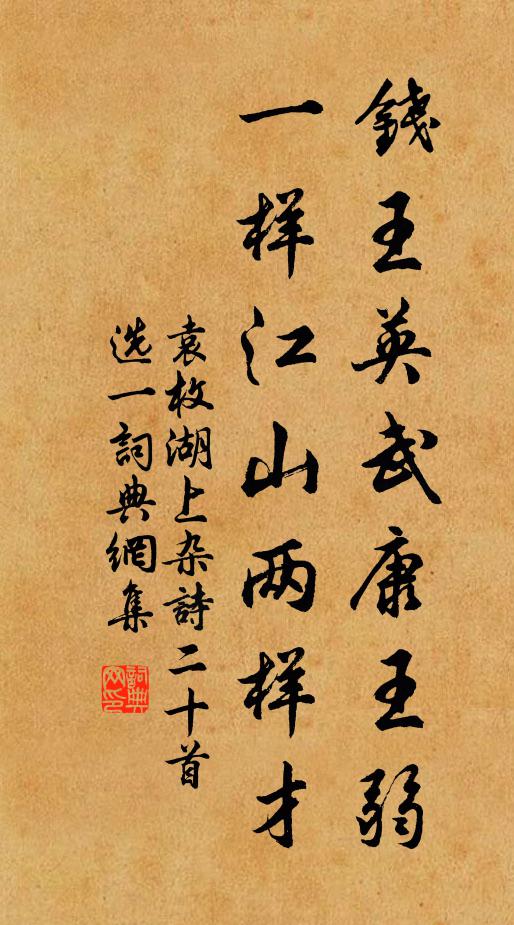 錢王英武康王弱
一样江山两样才
袁枚湖上杂詩二十首
选一詞典網集
詞典网印